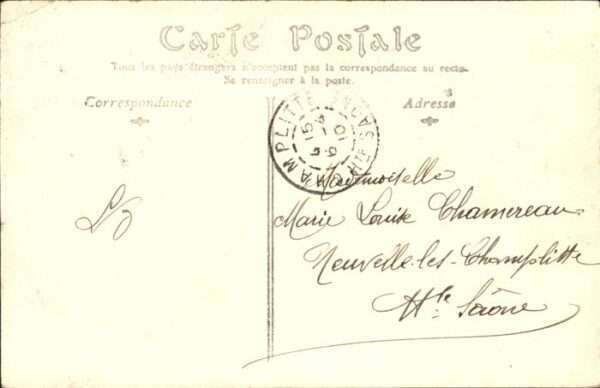 Carte Postale
Tous les pays étrangers n'acceptent pas la correspondance au recto.
Se renseigner à la poste.
Correspondance
Adresse
CHAMPLITTE
15
10
Hte SAONE
Mademoiselle
Marie Louise Chamereau
Neuvelle-les-Champlitte
Hte Saône